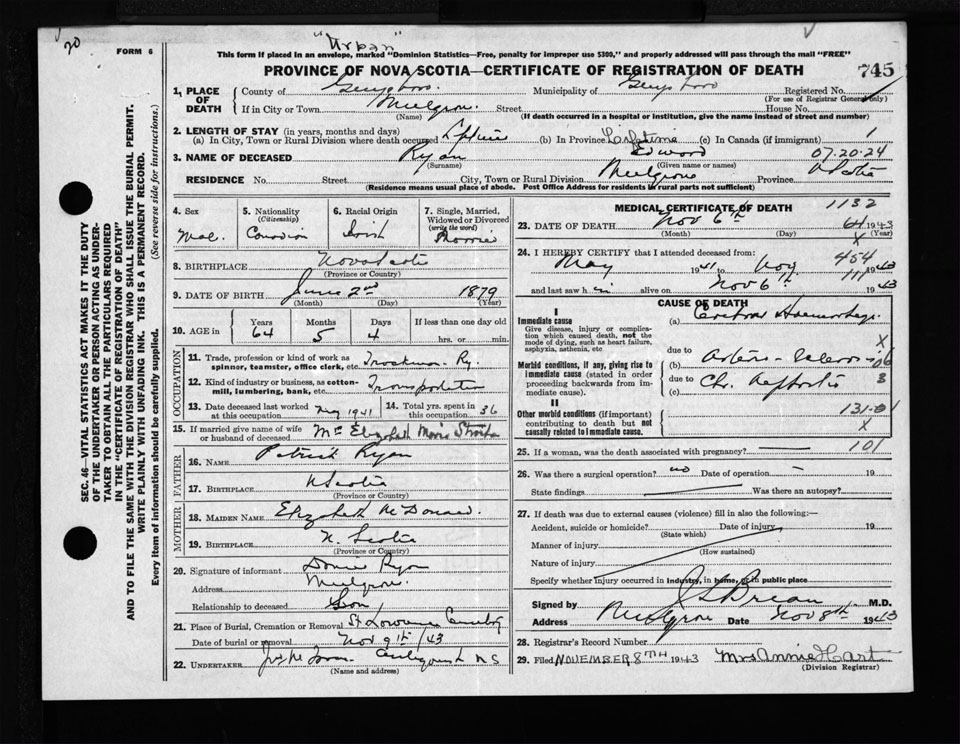 20
"Urban"
FORM 6
This form if placed in an envelope, marked "Dominion Statistics—Free, penalty for improper use $300," and properly addressed will pass through the mail "FREE"
PROVINCE OF NOVA SCOTIA—CERTIFICATE OF REGISTRATION OF DEATH
745
1. PLACE OF DEATH
County of Guysboro. Municipality of Guysboro Registered No.
(For use of Registrar General only)
If in City or Town Mulgrave. Street House No.
(Name) (If death occurred in a hospital or institution, give the name instead of street and number)
2. LENGTH OF STAY (in years, months and days)
(a) In City, Town or Rural Division where death occurred Lifetime (b) In Province Lifetime (c) In Canada (if immigrant)
3. NAME OF DECEASED Ryan Edward 07.20.24
(Surname) (Given name or names)
RESIDENCE No. Street City, Town or Rural Division Mulgrave Province N Scotia
(Residence means usual place of abode. Post Office Address for residents in rural parts not sufficient)
SEC. 46—VITAL STATISTICS ACT MAKES IT THE DUTY
OF THE UNDERTAKER OR PERSON ACTING AS UNDER-
TAKER TO OBTAIN ALL THE PARTICULARS REQUIRED
IN THE "CERTIFICATE OF REGISTRATION OF DEATH"
AND TO FILE THE SAME WITH THE DIVISION REGISTRAR WHO SHALL ISSUE THE BURIAL PERMIT.
WRITE PLAINLY WITH UNFADING INK. THIS IS A PERMANENT RECORD.
Every item of information should be carefully supplied. (See reverse side for instructions.)
4. Sex
Mal.
5. Nationality
(Citizenship)
Canadian
6. Racial Origin
Irish
7. Single, Married, Widowed or Divorced
(write the word)
Married
8. BIRTHPLACE Nova Scotia
(Province or Country)
9. DATE OF BIRTH June 2nd 1879
(Month) (Day) (Year)
10. AGE in
Years Months Days If less than one day old
64 5 4 hrs. or min.
OCCUPATION
11. Trade, profession or kind of work as spinner, teamster, office clerk, etc. Trackman Ry.
12. Kind of industry or business, as cotton-mill, lumbering, bank, etc. Transportation
13. Date deceased last worked at this occupation May 1941
14. Total yrs. spent in this occupation 36
15. If married give name of wife or husband of deceased Mrs Elizabeth
FATHER
16. NAME Patrick Ryan
17. BIRTHPLACE N Scotia
(Province or Country)
MOTHER
18. MAIDEN NAME Elizabeth McDonald.
19. BIRTHPLACE N. Scotia
(Province or Country)
20. Signature of informant Ryan
Address Mulgrave.
Relationship to deceased Son
21. Place of Burial, Cremation or Removal St Lawrence Cemetery
Date of burial or removal Nov 9th/43
22. UNDERTAKER NS
(Name and address)
MEDICAL CERTIFICATE OF DEATH 1132
23. DATE OF DEATH Nov 6th 64 1943
(Month) (Day) X (Year)
24. I HEREBY CERTIFY that I attended deceased from: 454
May 1941 to Nov 111 1943
and last saw him alive on Nov 6th 1943
CAUSE OF DEATH
I
Immediate cause
Give disease, injury or complication which caused death, not the mode of dying, such as heart failure, asphyxia, asthenia, etc.
(a) Cerebral Haemorrhage
X
Morbid conditions, if any, giving rise to immediate cause (stated in order proceeding backwards from immediate cause).
due to
(b) Arterio-sclerosis 06
due to
(c) Chr. Nephritis 3
II
Other morbid conditions (if important) contributing to death but not causally related to immediate cause.
131-01
X
25. If a woman, was the death associated with pregnancy? 101
26. Was there a surgical operation? no Date of operation — 19
State findings Was there an autopsy?
27. If death was due to external causes (violence) fill in also the following:—
Accident, suicide or homicide? Date of injury 19
(State which)
Manner of injury
(How sustained)
Nature of injury
Specify whether injury occurred in industry, in home, or in public place
Signed by M.D.
Address Mulgrave Date Nov 8th 1943
28. Registrar's Record Number
29. Filed NOVEMBER 8TH 1943 Mrs Annie Hart
(Division Registrar)